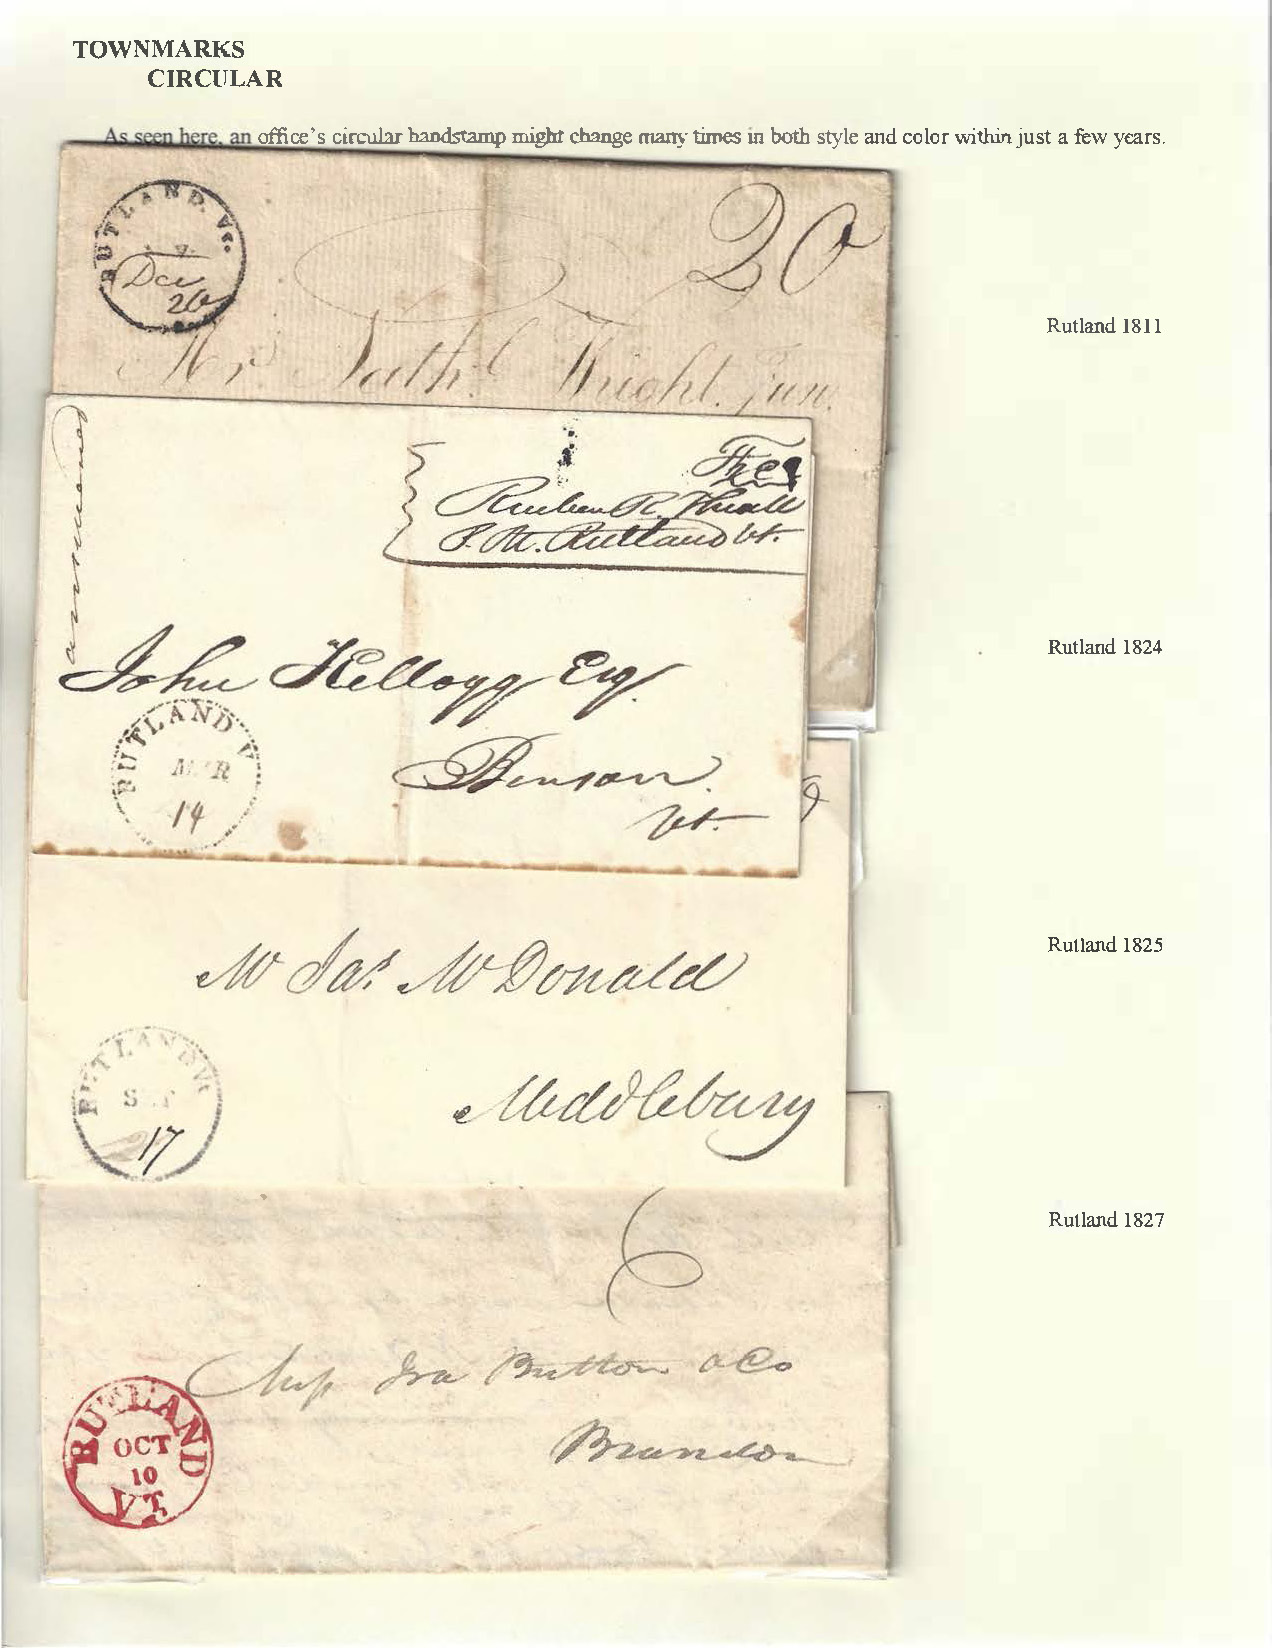 TOWNMARKS
CIRCULAR
As seen here, an office's circular handstamp might change many times in both style and color within just a few years.
RUTLAND. Vt.
Dec
20
Mr. Nathl. Wright. Junr.
Rutland 1811
Free
Reuben R. Thrall
P. M. Rutland Vt.
John Kellogg Esq.
Benson.
Vt.
RUTLAND V
MAR
14
Rutland 1824
Mr Jas. McDonald
Middlebury
RUTLAND Vt
SEP
17
Rutland 1825
6
Ira Button & Co
Brandon
RUTLAND
OCT
10
VT.
Rutland 1827